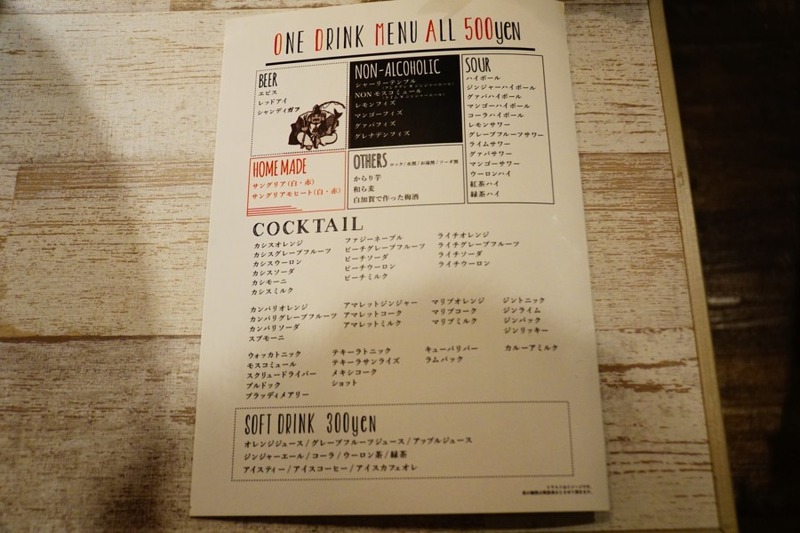 ONE DRINK MENU ALL 500yen
BEER
エビス
レッドアイ
シャンディガフ
NON-ALCOHOLIC
シャーリーテンプル
NONモスコミュール
レモンフィズ
マンゴーフィズ
グァバフィズ
グレナデンフィズ
SOUR
ハイボール
ジンジャーハイボール
グァバハイボール
マンゴーハイボール
コーラハイボール
レモンサワー
グレープフルーツサワー
ライムサワー
グァバサワー
マンゴーサワー
ウーロンハイ
紅茶ハイ
緑茶ハイ
HOME MADE
サングリア(白・赤)
サングリアモヒート(白・赤)
OTHERS ロック/水割/お湯割/ソーダ割
からり芋
和ら麦
白加賀で作った梅酒
COCKTAIL
カシスオレンジ
カシスグレープフルーツ
カシスウーロン
カシスソーダ
カシモーニ
カシスミルク
ファジーネーブル
ピーチグレープフルーツ
ピーチソーダ
ピーチウーロン
ピーチミルク
ライチオレンジ
ライチグレープフルーツ
ライチソーダ
ライチウーロン
カンパリオレンジ
カンパリグレープフルーツ
カンパリソーダ
スプモーニ
アマレットジンジャー
アマレットコーク
アマレットミルク
マリブオレンジ
マリブコーク
マリブミルク
ジントニック
ジンライム
ジンバック
ジンリッキー
ウォッカトニック
モスコミュール
スクリュードライバー
ブルドック
ブラッディメアリー
テキーラトニック
テキーラサンライズ
メキシコーク
ショット
キューバリバー
ラムバック
カルーアミルク
SOFT DRINK 300yen
オレンジジュース/グレープフルーツジュース/アップルジュース
ジンジャーエール/コーラ/ウーロン茶/緑茶
アイスティー/アイスコーヒー/アイスカフェオレ